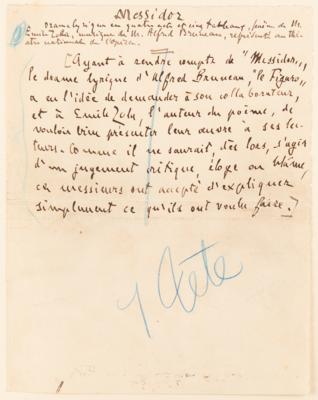 Messidor
Drame lyrique en quatre actes et cinq tableaux, poème de M.
Emile Zola, musique de M. Alfred Bruneau, représenté au thé-
âtre national de l'Opéra.
[Ayant à rendre compte de "Messidor",
le drame lyrique d'Alfred Bruneau, "le Figaro"
a eu l'idée de demander à son collaborateur,
et à Emile Zola, l'auteur du poème, de
vouloir bien présenter leur œuvre à ses lec-
teurs. Comme il ne saurait, dès lors, s'agir
d'un jugement critique, éloge ou blâme,
ces messieurs ont accepté d'expliquer
simplement ce qu'ils ont voulu faire.]
Tête